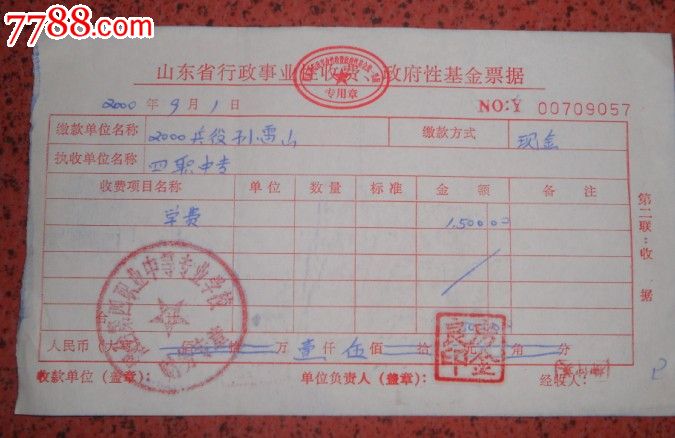 7788.com
山东省行政事业性收费、政府性基金票据
专用章
2000 年 9 月 1 日 NO:Y 00709057
缴款单位名称 2000 缴款方式 现金
执收单位名称 四职中专
收费项目名称 单位 数量 标准 金额 备注
学费 1500.00
第二联:收据
职业中等专业学校
人民币(大写) 拾 万 壹仟 伍佰 拾 元 角 分
收款单位(盖章): 单位负责人(盖章): 经收人: